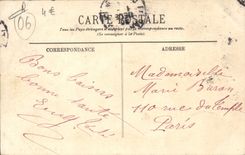 06
4€
CARTE POSTALE
Tous les Pays étrangers n'acceptent pas la correspondance au recto.
(Se renseigner à la Poste)
CORRESPONDANCE
ADRESSE
Bons baisers
bonne santé
Mademoiselle
Marie
110 rue du Temple
Paris